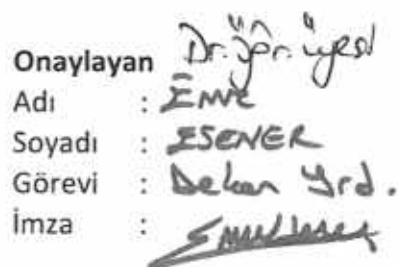 Onaylayan Dr. Öğr. Üyesi
Adı : Emre
Soyadı : ESENER
Görevi : Dekan Yrd.
İmza :